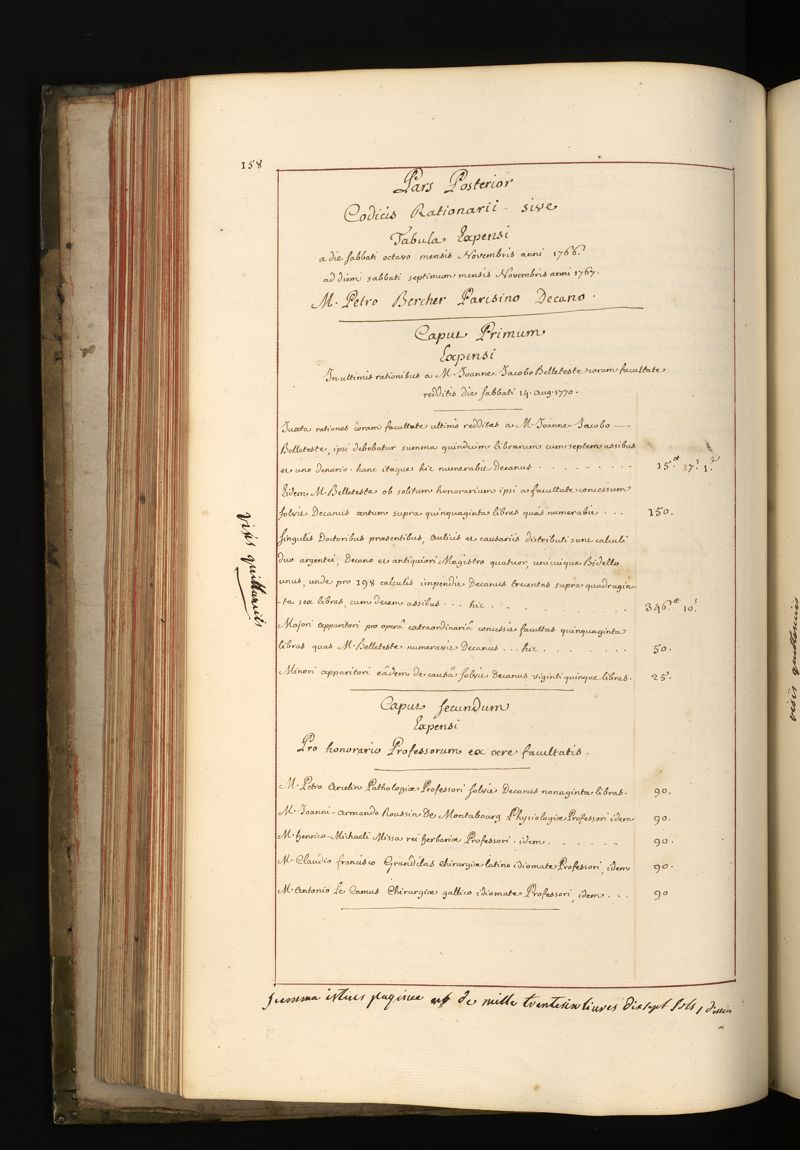 158
Pars Posterior
Codicis Rationarii sive
Tabula Expensi
a die sabbati octavo mensis Novembris anni 1766.
ad diem sabbati septimum mensis Novembris anni 1767.
M. Petro Bercher Parisino Decano.
Caput Primum
Expensi
In ultimis rationibus a M. Joanne Jacobo Belleteste coram facultate
redditis die sabbati 14. aug. 1770.
Juxta rationes coram facultate ultimò redditas a M. Joanne-Jacobo
Belleteste, ipsi debebatur summa quindecim librarum cum septem assibus
et uno denario. hanc itaque hic numerabit Decanus . . . . . . . . 15.tt 17.s 1.d
Eidem M. Belleteste ob solitum honorarium ipsi a facultate concessum
solvit Decanus centum supra quinquaginta libras quas numerabit . . . 150.
Singulis Doctoribus praesentibus, aulicis et causariis distributi sunt calculi
duo argentei, Decano et antiquiori Magistro quatuor, unicuique Bidello
unus, unde pro 198 calculis impendit Decanus trecentas supra quadragin-
-ta sex libras, cum decem assibus . . . hic . . . . . . . 346.tt 10.s
Majori apparitori pro operâ extraordinariâ concessit facultas quinquaginta
libras quas M. Belleteste numeravit Decanus . . . hic . . . . . . 50.
Minori apparitori eâdem de causâ solvit Decanus viginti quinque libras. 25.
Caput secundum
Expensi
Pro honorario Professorum ex aere facultatis.
M. Petro Arcelin Pathologiae Professori solvit Decanus nonaginta libras. 90.
M. Joanni-Armando Roussin De Montabourg Physiologiae Professori idem 90.
M. Henrico-Michaeli Missa rei herbariae Professori. idem . . . . . . 90.
M. Claudio Francisco Grandclas Chirurgiae latino idiomate Professori, idem 90.
M. Antonio Le Camus Chirurgiae gallico idiomate Professori, idem . . . 90
Summa istius paginae est de mille trentesix livres dixsept sols 1 denier
visis guillermis